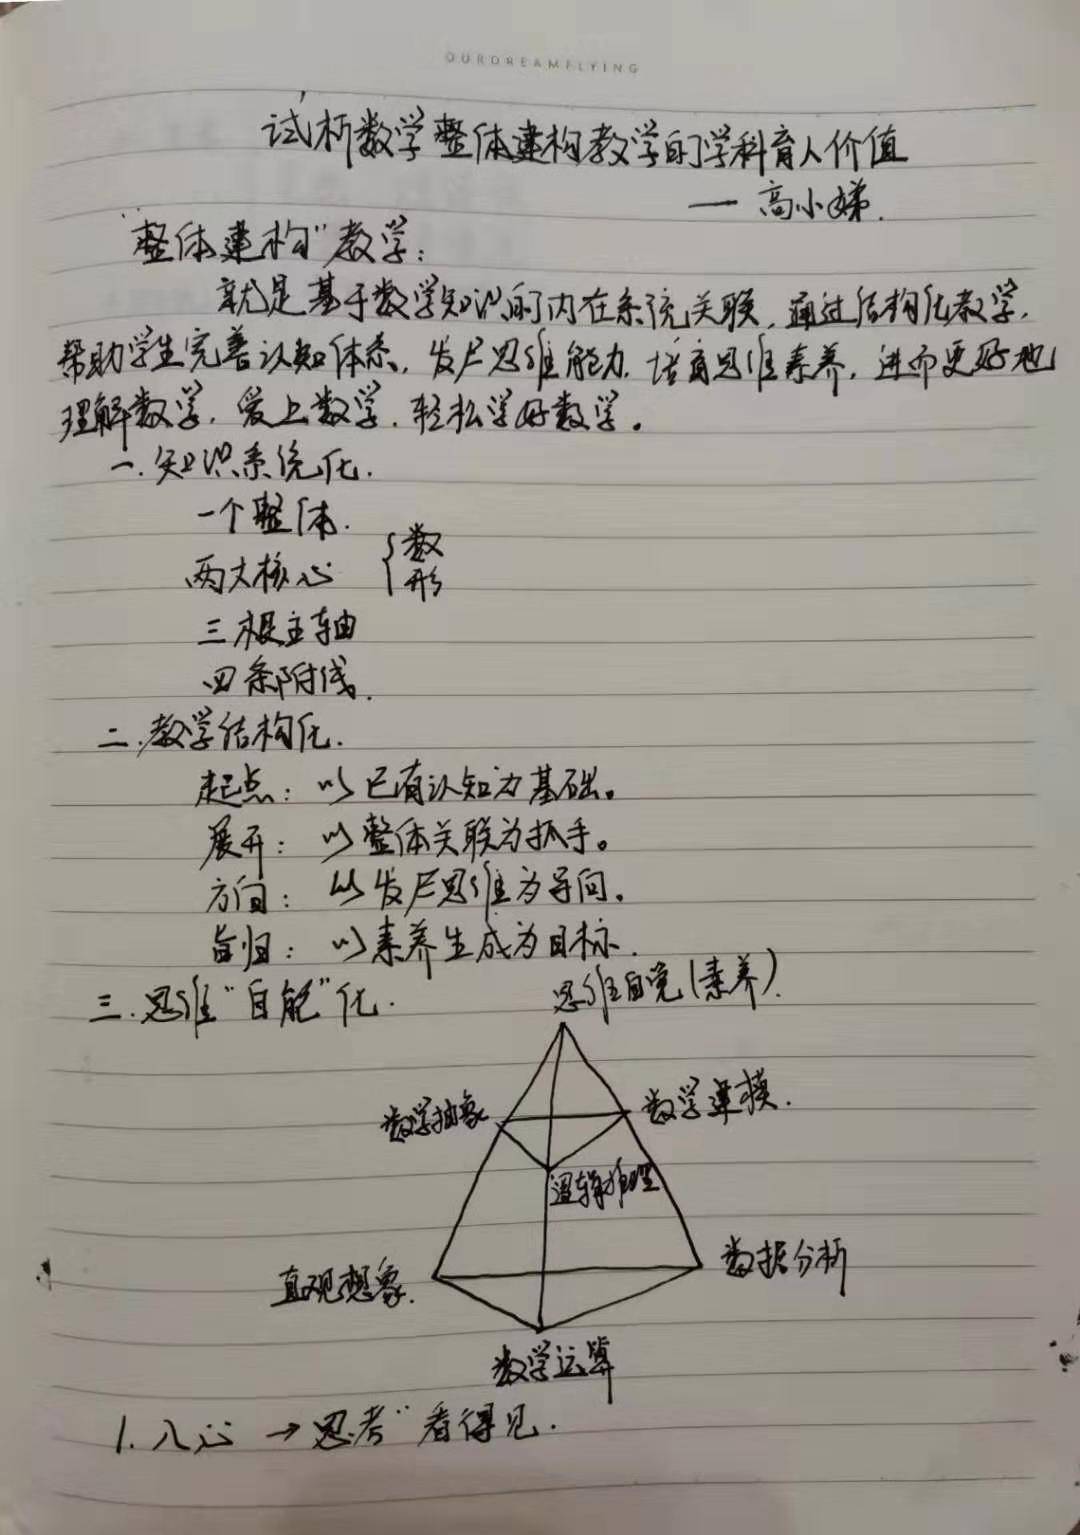 OURDREAMFLYING
试析数学整体建构教学的学科育人价值
— 高小娣.
"整体建构"教学：
就是基于数学知识的内在系统关联，通过结构化教学，
帮助学生完善认知体系，发展思维能力，培育思维素养，进而更好地
理解数学，爱上数学，轻松学好数学。
一.知识系统化.
一个整体.
两大核心 { 数
形
三根主轴
四条附线.
二.教学结构化.
起点：以已有认知为基础。
展开：以整体关联为抓手。
方向：以发展思维为导向。
旨归：以素养生成为目标.
三.思维"自能"化.
思维自觉(素养).
数学抽象
数学建模.
逻辑推理
直观想象.
数据分析
数学运算
1.入心 → 思考"看得见.